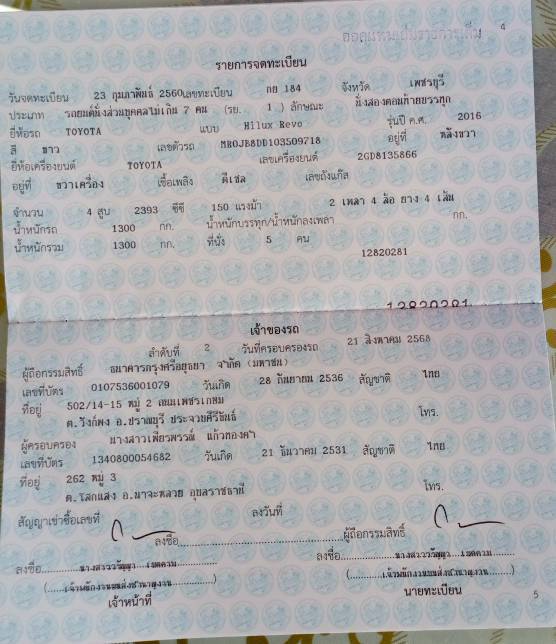 4
รายการจดทะเบียน
วันจดทะเบียน 23 กุมภาพันธ์ 2560 เลขทะเบียน กย 184 จังหวัด เพชรบุรี
ประเภท รถยนต์นั่งส่วนบุคคลไม่เกิน 7 คน (รย. 1 ) ลักษณะ นั่งสองตอนท้ายบรรทุก
ยี่ห้อรถ TOYOTA แบบ Hilux Revo รุ่นปี ค.ศ. 2016
สี ขาว เลขตัวรถ MR0JB8DD103509718 อยู่ที่ หลังขวา
ยี่ห้อเครื่องยนต์ TOYOTA เลขเครื่องยนต์ 2GD8135866
อยู่ที่ ขวาเครื่อง เชื้อเพลิง ดีเซล เลขถังแก๊ส
จำนวน 4 สูบ 2393 ซีซี 150 แรงม้า 2 เพลา 4 ล้อ ยาง 4 เส้น
น้ำหนักรถ 1300 กก. น้ำหนักบรรทุก/น้ำหนักลงเพลา กก.
น้ำหนักรวม 1300 กก. ที่นั่ง 5 คน
12820281
12820281
เจ้าของรถ
ลำดับที่ 2 วันที่ครอบครองรถ 21 สิงหาคม 2568
ผู้ถือกรรมสิทธิ์ ธนาคารกรุงศรีอยุธยา จำกัด (มหาชน)
เลขที่บัตร 0107536001079 วันเกิด 28 กันยายน 2536 สัญชาติ ไทย
ที่อยู่ 502/14-15 หมู่ 2 ถนนเพชรเกษม
ต.วังก์พง อ.ปราณบุรี ประจวบคีรีขันธ์ โทร.
ผู้ครอบครอง นางสาวเพียรพรรณ์ แก้วทองคำ
เลขที่บัตร 1340800054682 วันเกิด 21 ธันวาคม 2531 สัญชาติ ไทย
ที่อยู่ 262 หมู่ 3
ต.โสกแสง อ.นาจะหลวย อุบลราชธานี โทร.
สัญญาเช่าซื้อเลขที่ ลงวันที่
ลงชื่อ ผู้ถือกรรมสิทธิ์
ลงชื่อ ลงชื่อ
เจ้าหน้าที่ นายทะเบียน
5